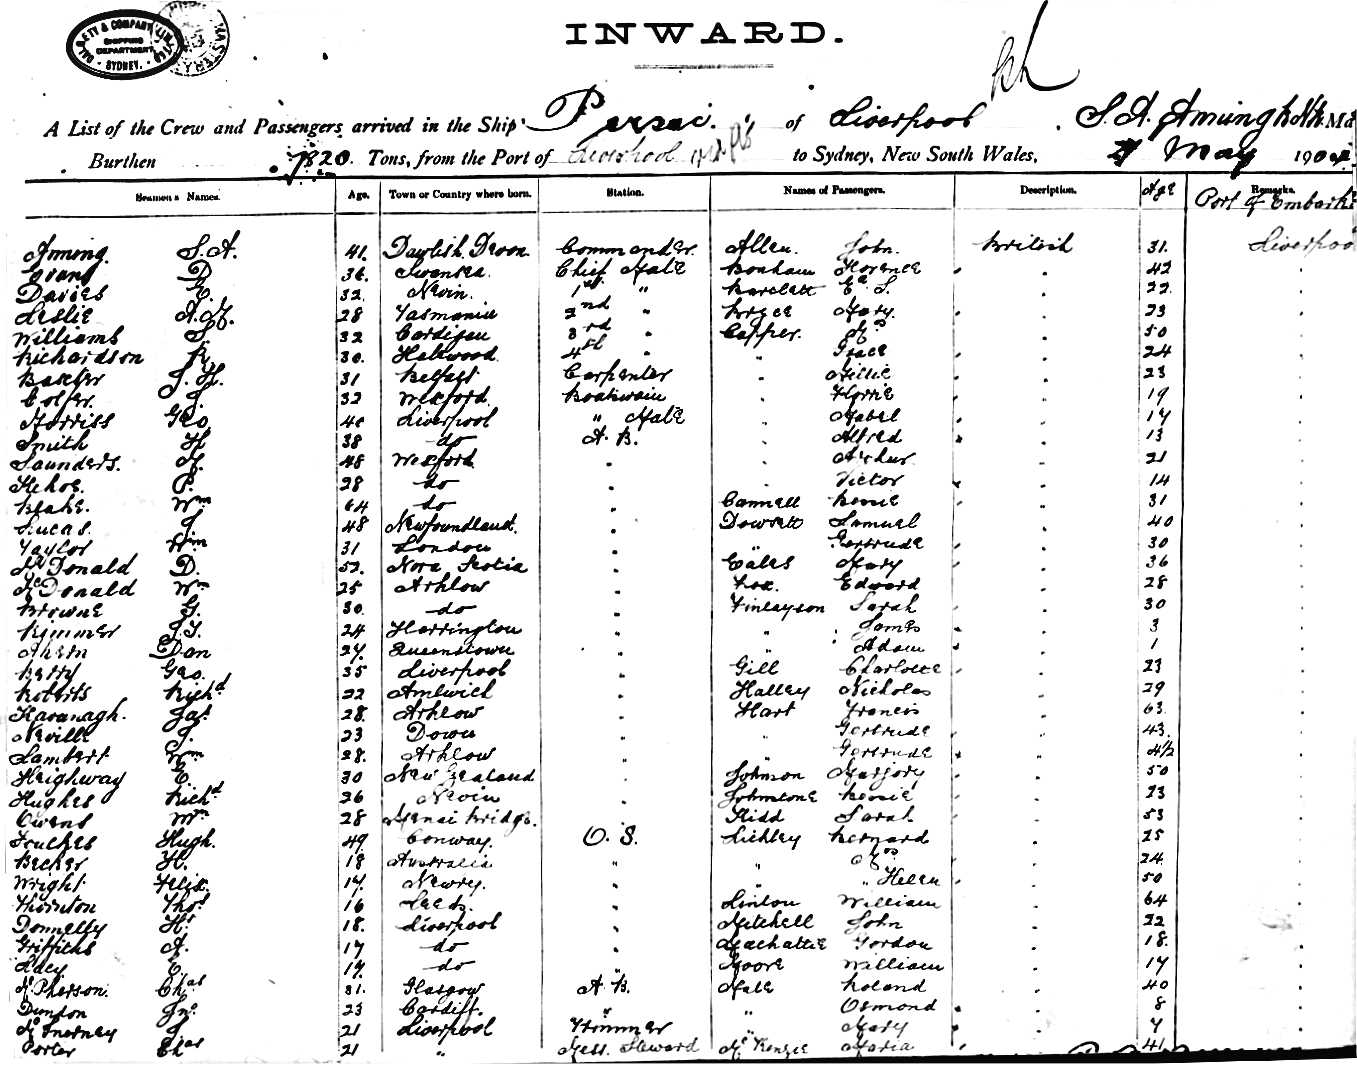 DALGETY & COMPANY LIMITED SHIPPING DEPARTMENT SYDNEY.
INWARD.
A List of the Crew and Passengers arrived in the Ship Persic. of Liverpool S. A. Ma
Burthen 7820 Tons, from the Port of Liverpool to Sydney, New South Wales, May 1904
Seamen's Names. Age. Town or Country where born. Station. Names of Passengers. Description. Age Remarks.
Port of Embark
S. A. 41. Dawlish Devon Commander. Allen. John. British 31. Liverpool
Evans D. 36. Swansea. Chief Mate Bonham Florence 42
Davies E. 32. Nevin. 1st " Bartlett S. 22
Leslie 28 Tasmania 2nd " Mary. 23
Williams 32 Cardigan 3rd " Capper. 50
Richardson R. 30. 4th " " Grace 24
J. H. 31 Belfast Carpenter " Nellie 23
J. 32 Wexford. Boatswain " 19
Morriss Geo 40 Liverpool " Mate " Mabel 17
Smith H 38 do A. B. " Alfred 13
Saunders. 48 Wexford " " Arthur 21
Kehoe. P. 28 do " " Victor 14
Blake. Wm 64 do " Cannell Bessie 31
Lucas. J. 48 Newfoundland. " Dowsett Samuel 40
Taylor Wm 31 London " " Gertrude 30
McDonald D. 52. Nova Scotia " Eales Mary 36
McDonald Wm 25 Arklow " Fox. Edward 28
Browne G. 30. do " Finlayson Sarah 30
24 Harrington " " James 3
Ahern Dan 27. Queenstown " " Adam 1
Berry Geo. 35 Liverpool " Gill Charlotte 23
Roberts Richd 22 Amlwich " Halley Nicholas 29
Kavanagh. Jas. 28. Arklow " Hart Francis 63
Neville J. 23 Down " " Gertrude 43.
Lambert Wm 28. Arklow " " Gertrude 4½
Heighway E. 30 New Zealand " Johnson Marjory 50
Hughes Richd 26 Nevin " Johnstone Bessie 23
Owens Wm 28 Menai Bridge. " Kidd Sarah 53
Hugh. 49. Conway. O. S. Lichley Bernard 25
Becker H. 18 Australia " " 24
Wright Felix. 17. Newry. " " Helen 50
Thornton Thos 16 Leeds. " Linton William 64
Donnelly H. 18. Liverpool " Mitchell John 22
Griffiths A. 17 do " Machattie Gordon 18.
E. 17. do " Moore William 17
McPherson. Chas 31. Glasgow A. B. Male Roland 40
Jno. 23 Cardiff. " " Osmond 8
McInerney J. 21 Liverpool Trimmer " Mary 7
Porter Chas 21 " Mess. Steward McKenzie Maria 41